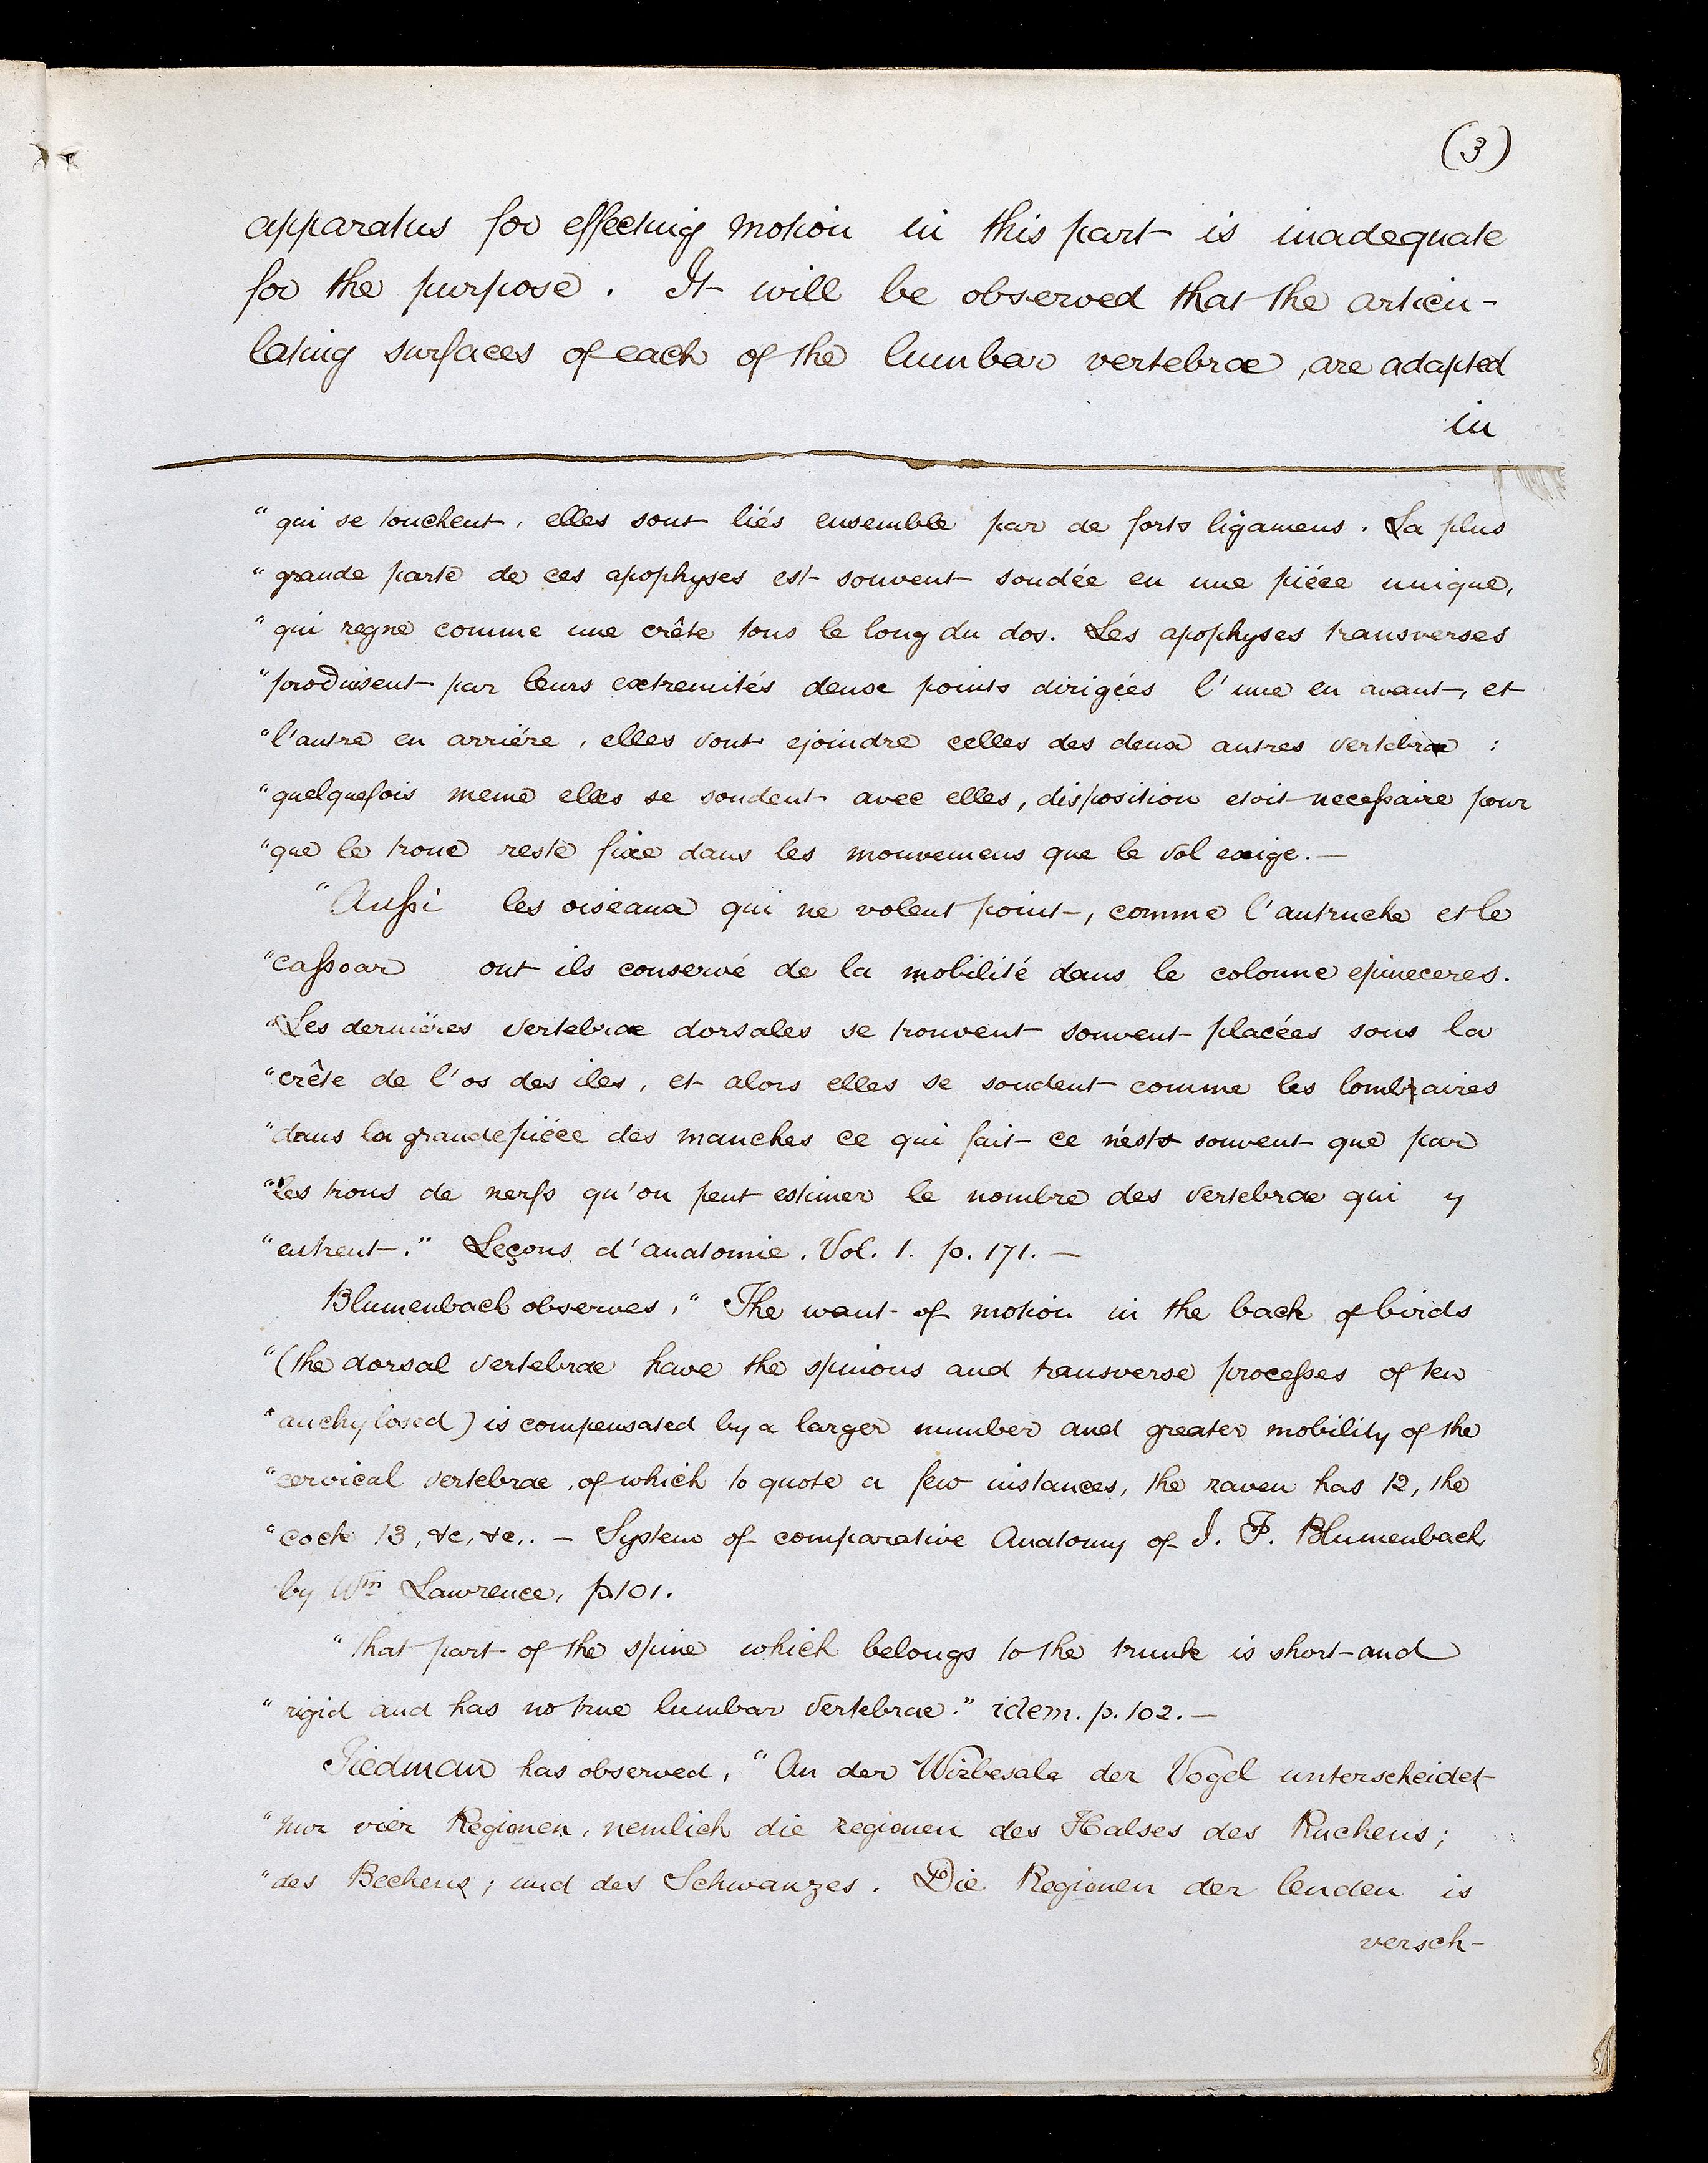 (3)
apparatus for effecting motion in this part is inadequate
for the purpose. It will be observed that the articu-
lating surfaces of each of the lumbar vertebræ, are adapted
in
"qui se touchent, elles sont liés ensemble par de forts ligamens. La plus
"grande parte de ces apophyses est souvent soudée en une piéce unique,
"qui regne comme une crête tous le long du dos. Les apophyses transverses
"produisent par leurs extremités deux points dirigées l'une en avant, et
"l'autre en arriére, elles vont ejoindre celles des deux autres vertebræ :
"quelquefois meme elles se soudent avec elles, disposition etoit necessaire pour
"que le tronc reste fixe dans les mouvemens que le vol exige.—
"Aussi les oiseaux qui ne volent point, comme l'autruche et le
"cassoar ont ils conservé de la mobilité dans le colonne epineceres.
"Les derniéres vertebræ dorsales se trouvent souvent placées sous la
"crête de l'os des iles, et alors elles se soudent comme les lombraires
"dans la grande piéce des manches ce qui fait ce n'ests souvent que par
"les trous de nerfs qu'on peut estimer le nombre des vertebræ qui y
"entrent." Leçons d'anatomie. Vol. 1. p. 171.—
Blumenbach observes, "The want of motion in the back of birds
"(the dorsal vertebrae have the spinous and transverse processes often
"anchylosed) is compensated by a larger number and greater mobility of the
"cervical vertebrae, of which to quote a few instances, the raven has 12, the
"cock 13, &c, &c,. — System of comparative Anatomy of J. F. Blumenbach
by Wm Lawrence, p.101.
"that part of the spine which belongs to the trunk is short and
"rigid and has no true lumbar vertebrae." idem. p. 102.—
Tiedman has observed, "An der Wirbesale der Vogel unterscheidet
"nur vier Regionen, nemlich die regionen des Halses des Ruchens;
"des Bechens; und des Schwanzes. Die Regionen der lenden is
versch-